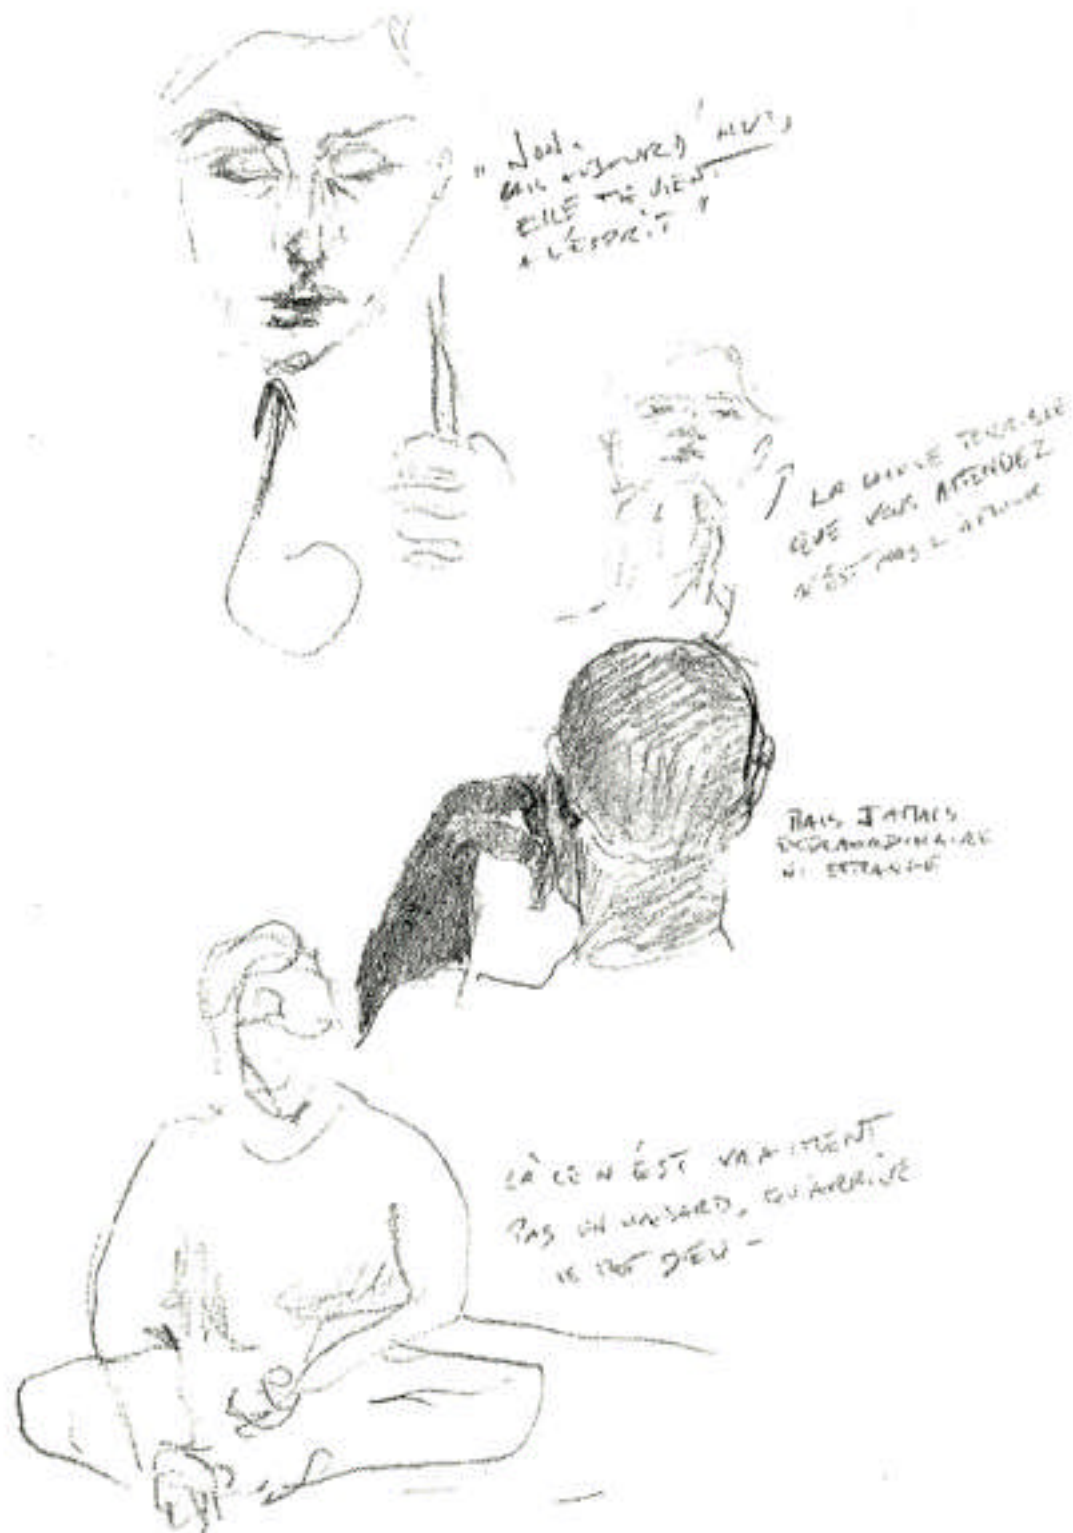 " NON.
MAIS AUJOURD'HUI,
ELLE ME VIENT
A L'ESPRIT "
LA CHOSE TERRIBLE
QUE VOUS ATTENDEZ
N'EST PAS L'AMOUR
MAIS JAMAIS
EXTRAORDINAIRE
NI ETRANGE
LÀ CE N'EST VRAIMENT
PAS UN HASARD, QU'ARRIVE
LE MOT DIEU -